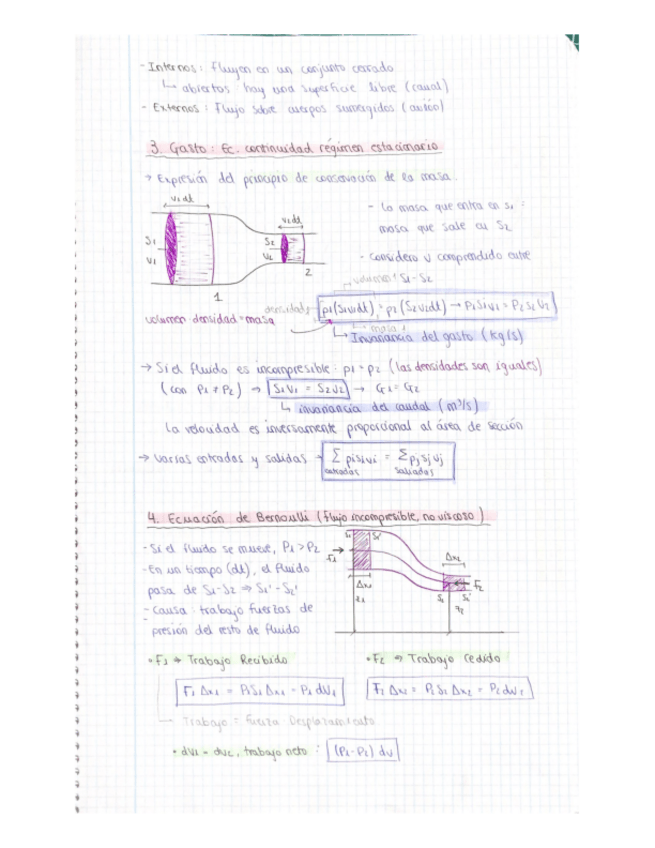 - Internos: Fluyen en un conjunto cerrado
↳ abiertos hay una superficie libre (canal)
- Externos: Flujo sobre cuerpos sumergidos (avión)
3. Gasto: Ec. continuidad régimen estacionario
→ Expresión del principio de conservación de la masa.
v₁dt
- La masa que entra en S₁ =
masa que sale en S₂
v₂dt
S₁
V₁
S₂
V₂
- Considero v comprendido entre
S₁-S₂
volumen 1
1
2
densidad₁
ρ₁(S₁v₁dt) = ρ₂(S₂v₂dt) → ρ₁S₁v₁ = ρ₂S₂V₂
volumen · densidad = masa
masa 1
↳ Invariancia del gasto (kg/s)
→ Si el fluido es incompresible: ρ₁ = ρ₂ (las densidades son iguales)
(con P₁ ≠ P₂) → S₁V₁ = S₂V₂ → G₁ = G₂
↳ invariancia del caudal (m³/s)
La velocidad es inversamente proporcional al área de sección
→ Varias entradas y salidas → Σ ρᵢsᵢvᵢ = Σ ρⱼsⱼvⱼ
entradas salidas
4. Ecuación de Bernoulli (flujo incompresible, no viscoso)
- Si el fluido se mueve, P₁ > P₂
- En un tiempo (dt), el fluido
pasa de S₁-S₂ ⇒ S₁'-S₂'
- Causa: trabajo fuerzas de
presión del resto de fluido
S₁ S₁'
F₁
Δx₁
z₁
Δx₂
F₂
z₂
• F₁ ⇒ Trabajo Recibido
• F₂ ⇒ Trabajo Cedido
F₁ Δx₁ = P₁S₁Δx₁ = P₁ dV₁
↳ Trabajo = Fuerza · Desplazamiento
• dV₁ = dV₂, trabajo neto: (P₁-P₂) dv